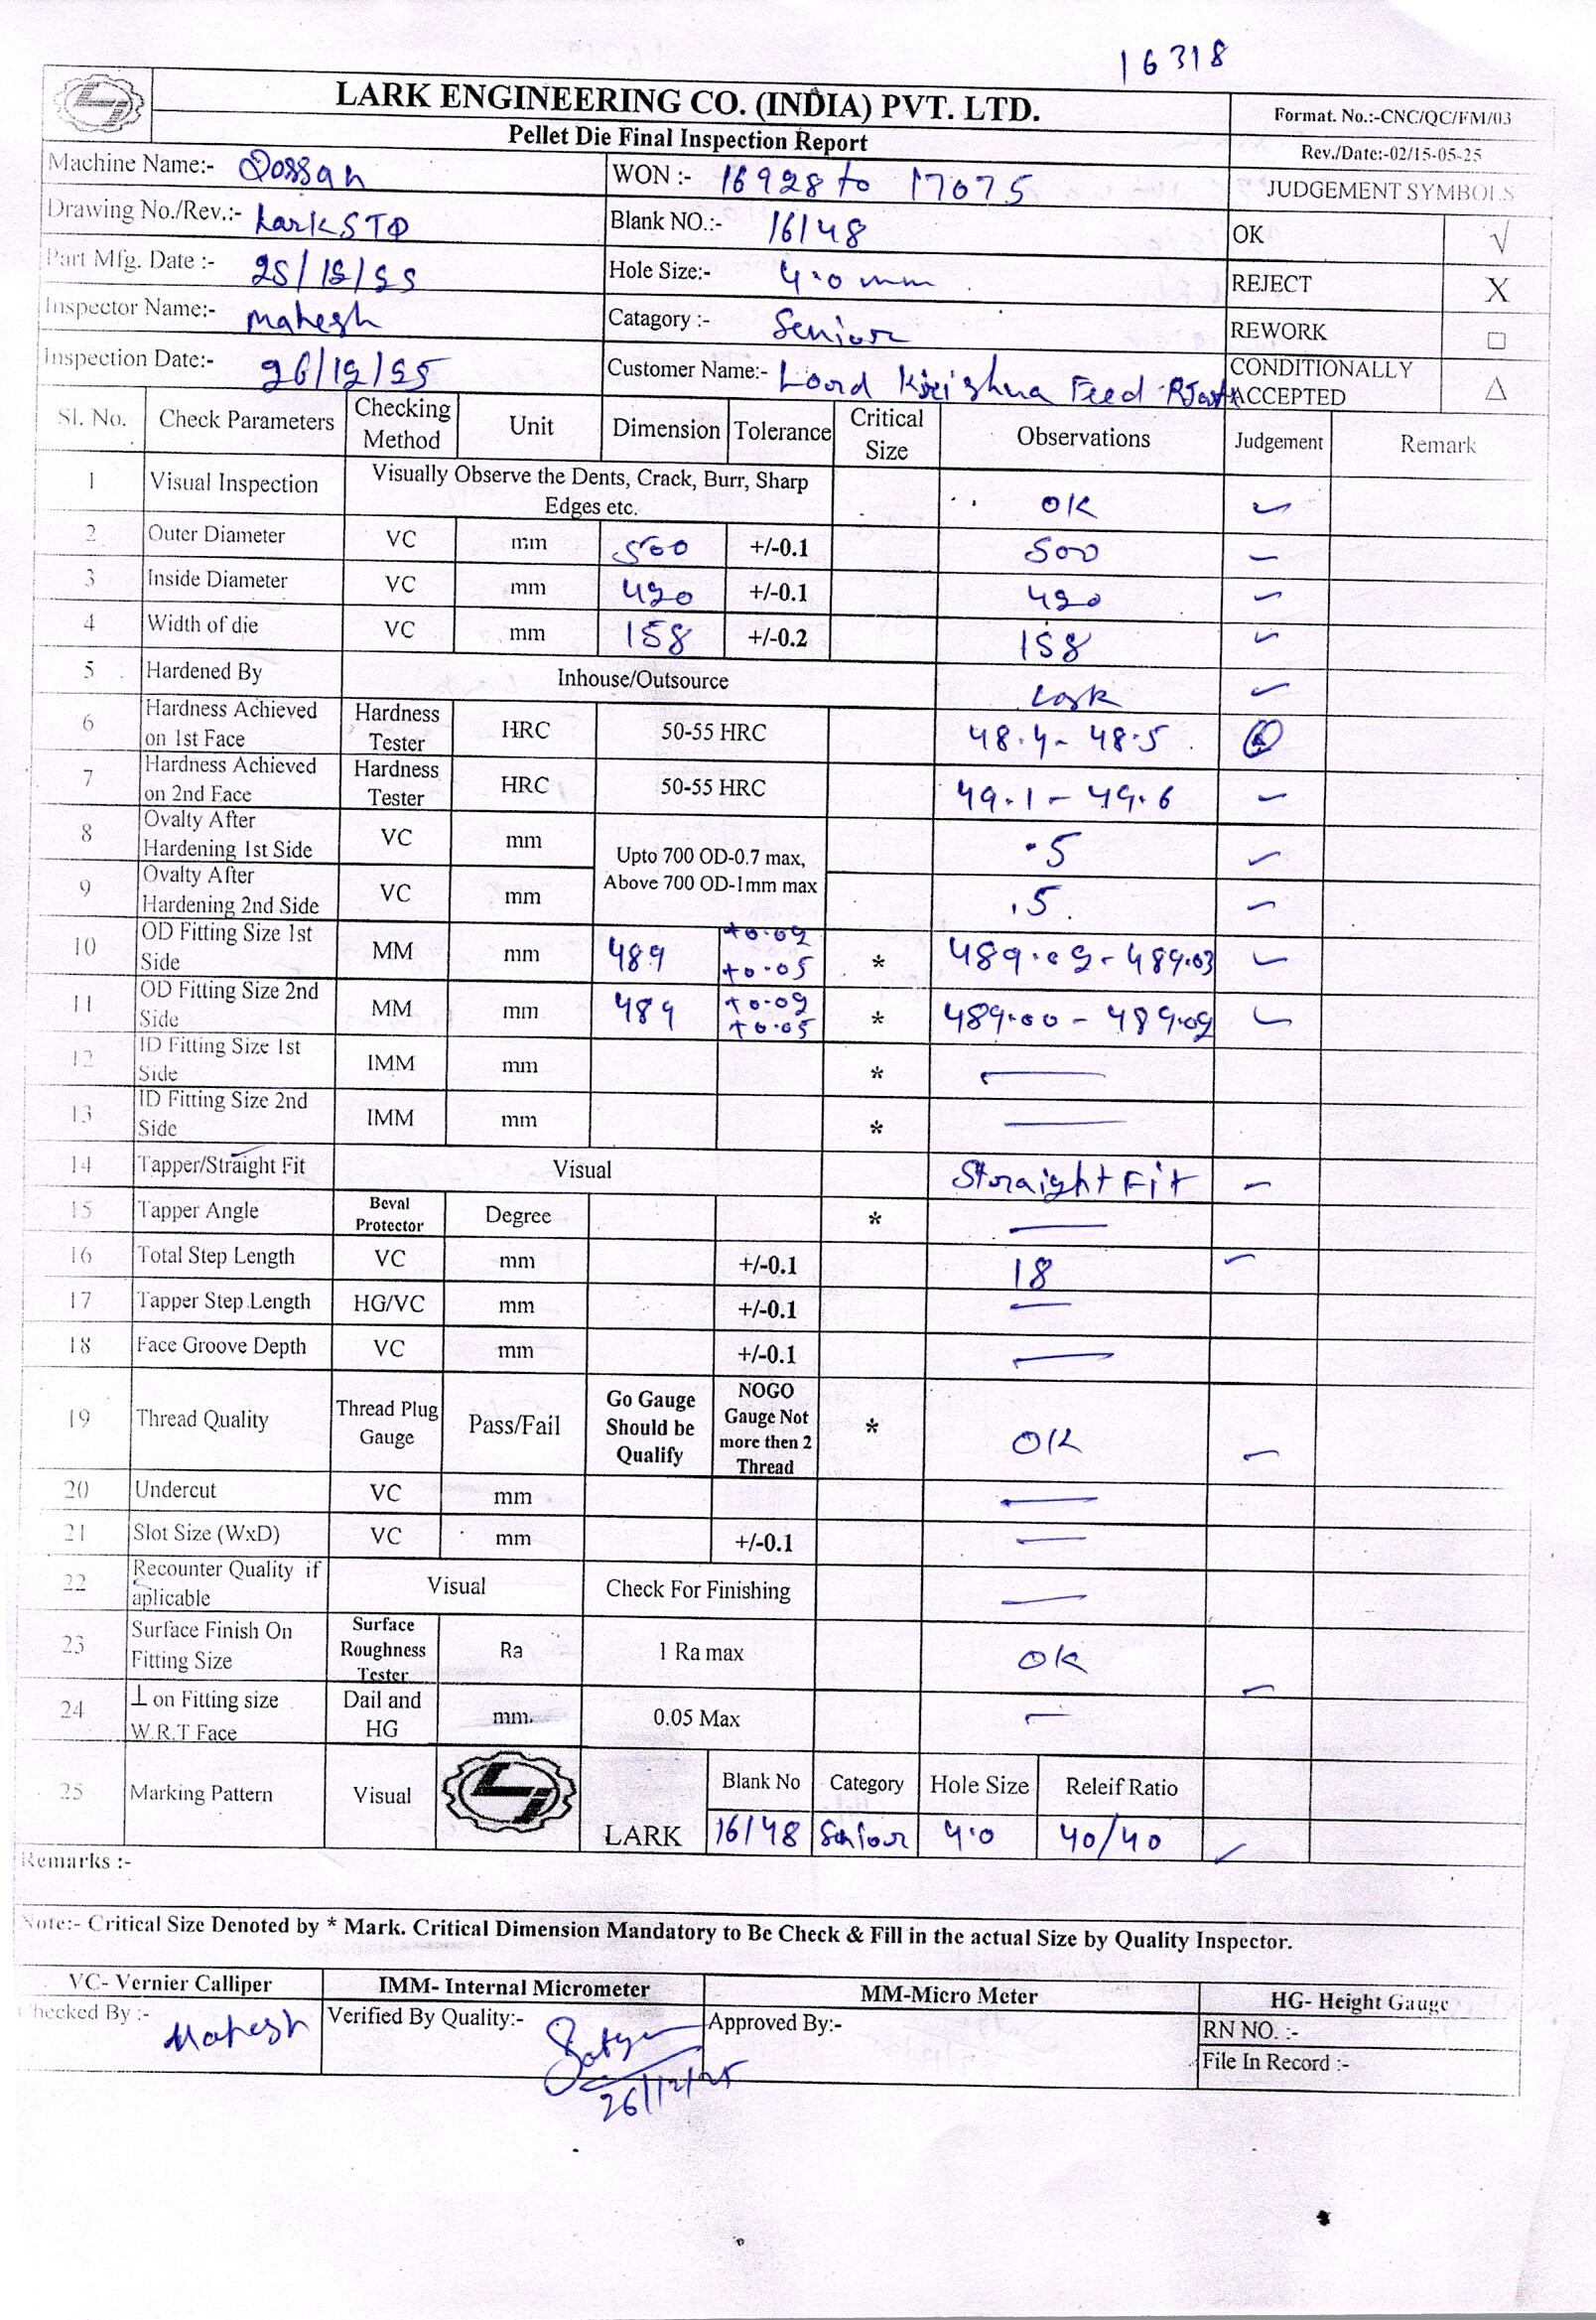 16318
LARK ENGINEERING CO. (INDIA) PVT. LTD.
Pellet Die Final Inspection Report
Format. No.:-CNC/QC/FM/03
Rev./Date:-02/15-05-25
Machine Name:- Dossan WON :- 16928 to 17075 JUDGEMENT SYMBOLS
Drawing No./Rev.:- Lark STD Blank NO.:- 16148 OK √
Part Mfg. Date :- Hole Size:- 4.0 mm REJECT X
Inspector Name:- Mahesh Catagory :- Senior REWORK □
Inspection Date:- Customer Name:- Loord Krishna Feed CONDITIONALLY ACCEPTED △
Sl. No. Check Parameters Checking Method Unit Dimension Tolerance Critical Size Observations Judgement Remark
1 Visual Inspection Visually Observe the Dents, Crack, Burr, Sharp Edges etc. OK
2 Outer Diameter VC mm 500 +/-0.1 500
3 Inside Diameter VC mm 420 +/-0.1 420
4 Width of die VC mm 158 +/-0.2 158
5 Hardened By Inhouse/Outsource Lark
6 Hardness Achieved on 1st Face Hardness Tester HRC 50-55 HRC 48.4- 48.5
7 Hardness Achieved on 2nd Face Hardness Tester HRC 50-55 HRC 49.1- 49.6
8 Ovalty After Hardening 1st Side VC mm Upto 700 OD-0.7 max, Above 700 OD-1mm max .5
9 Ovalty After Hardening 2nd Side VC mm .5
10 OD Fitting Size 1st Side MM mm 489 +0.02 +0.05 * 489.02-489.03
11 OD Fitting Size 2nd Side MM mm 489 +0.02 +0.05 * 489.00-489.02
12 ID Fitting Size 1st Side IMM mm *
13 ID Fitting Size 2nd Side IMM mm *
14 Tapper/Straight Fit Visual Straight Fit
15 Tapper Angle Beval Protector Degree *
16 Total Step Length VC mm +/-0.1 18
17 Tapper Step Length HG/VC mm +/-0.1
18 Face Groove Depth VC mm +/-0.1
19 Thread Quality Thread Plug Gauge Pass/Fail Go Gauge Should be Qualify NOGO Gauge Not more then 2 Thread * OK
20 Undercut VC mm
21 Slot Size (WxD) VC mm +/-0.1
22 Recounter Quality if aplicable Visual Check For Finishing
23 Surface Finish On Fitting Size Surface Roughness Tester Ra 1 Ra max OK
24 ⊥ on Fitting size W.R.T Face Dail and HG mm. 0.05 Max
25 Marking Pattern Visual LARK Blank No Category Hole Size Releif Ratio
16148 Senior 4.0 40/40
Remarks :-
Note:- Critical Size Denoted by * Mark. Critical Dimension Mandatory to Be Check & Fill in the actual Size by Quality Inspector.
VC- Vernier Calliper IMM- Internal Micrometer MM-Micro Meter HG- Height Gauge
Checked By :- Mahesh Verified By Quality:- Approved By:- RN NO. :-
26/12/25 File In Record :-